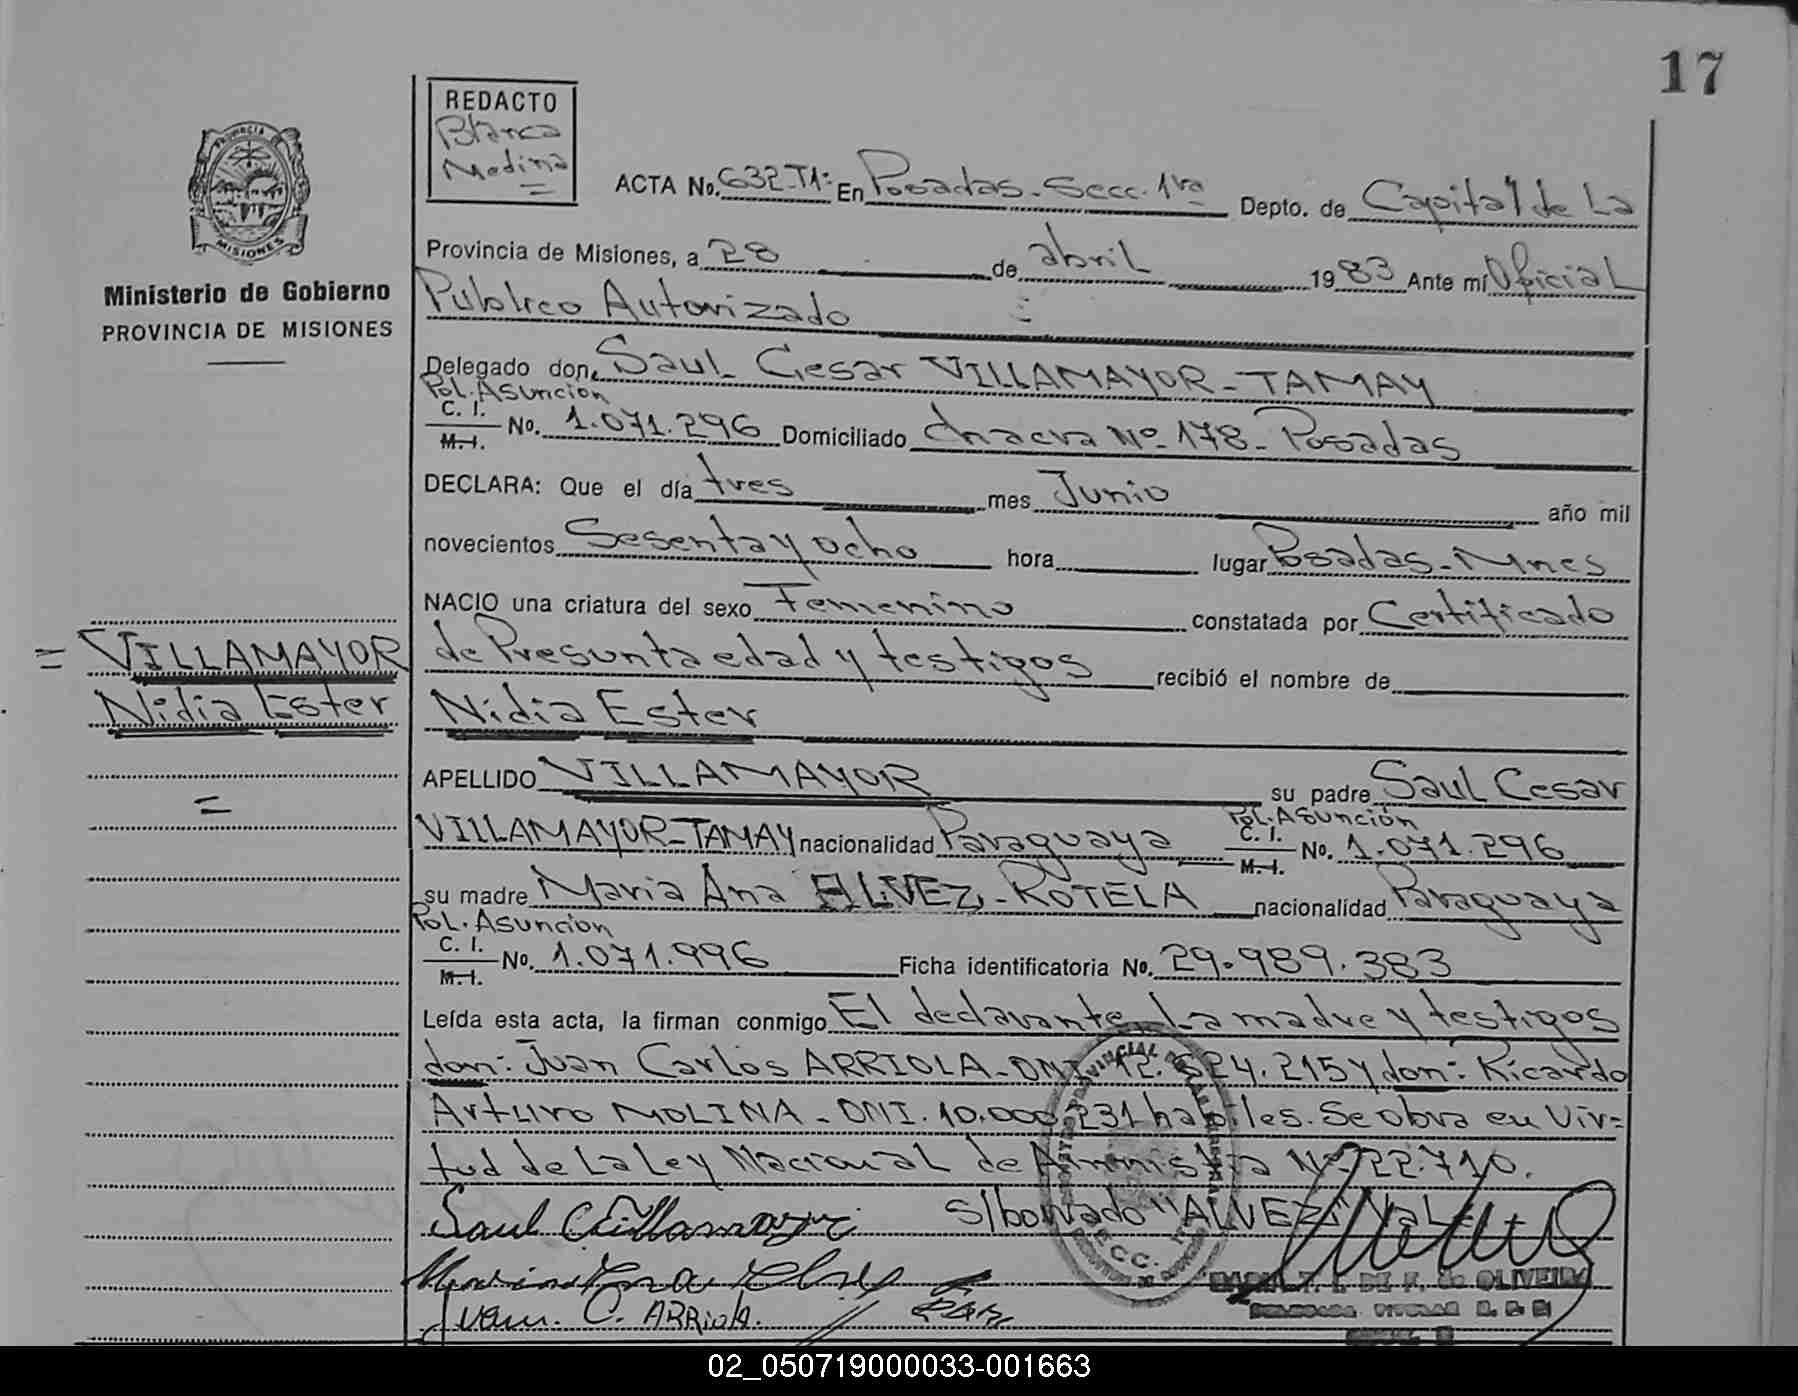 17
REDACTO
Blanca
Medina
=
PROVINCIA
MISIONES
Ministerio de Gobierno
PROVINCIA DE MISIONES
ACTA No. 632-T1: En Posadas-Secc. 1ra Depto. de Capital de La
Provincia de Misiones, a 28 de abril 1983 Ante mí Oficial
Público Autorizado
Delegado don, Saul Cesar VILLAMAYOR-TAMAY
Pol. Asuncion
C. I.
M.I. No. 1.071.296 Domiciliado chacra Nº 178-Posadas
DECLARA: Que el día tres mes Junio año mil
novecientos Sesenta y ocho hora lugar Posadas-Mnes
NACIO una criatura del sexo Femenino constatada por Certificado
de Presunta edad y testigos recibió el nombre de
= VILLAMAYOR
Nidia Ester
=
Nidia Ester
APELLIDO VILLAMAYOR su padre Saul Cesar
VILLAMAYOR-TAMAY nacionalidad Paraguaya
Pol. Asunción
C. I.
M.I. No. 1.071.296
su madre Maria Ana ALVEZ-ROTELA nacionalidad Paraguaya
Pol. Asuncion
C. I.
M.I. No. 1.071.996 Ficha identificatoria No. 29.989.383
Leída esta acta, la firman conmigo El declarante, La madre y testigos
don: Juan Carlos ARRIOLA-DNI 12.524.215 y don: Ricardo
Arturo MOLINA-DNI. 10.000.231 habiles. Se obra en Vir=
tud de La Ley Nacional de Amnistia Nº 22.710.
S/borrado "ALVEZ" Vale
Saul C Villamayor
Juan. C. ARRiola.
DE F. de OLIVEIRA
02_050719000033-001663